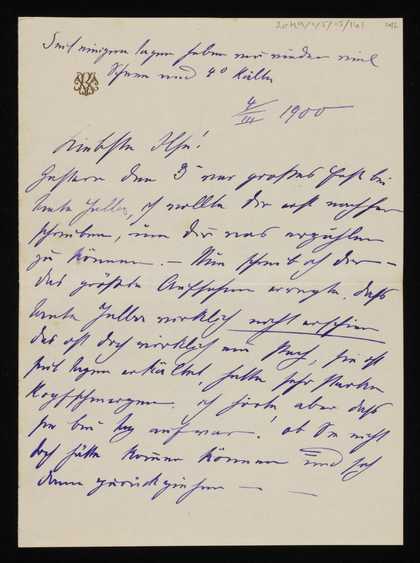 Seit einigen Tagen haben wir wieder viel
Schnee und 4° Kälte
4/III 1900
Liebste Ilse!
Gestern den 3ᵗ war großes Fest bei
Tante Jella, ich wollte Dir erst nachher
schreiben, um Dir was erzählen
zu können. – Nun schreib ich Dir –
das größte Aufsehen erregte, daß
Tante Jella wirklich nicht erschien
das ist doch wirklich ein, sie ist
seit Tagen erkältet, hatte sehr starke
Kopfschmerzen, ich hörte aber daß
sie bei Tag auf war! ob Sie nicht
doch hätte kommen können und sich
dann zurückziehen – –